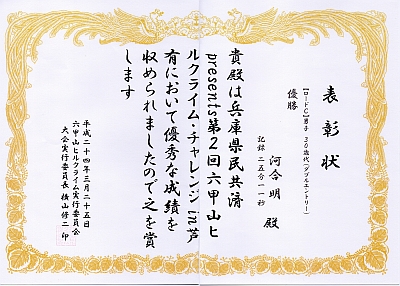 表彰状
【ロードC】男子 30歳代(ダブルエントリー)
優勝
河合 明 殿
記録 二五分一一秒
貴殿は兵庫県民共済
presents第2回六甲山ヒ
ルクライム・チャレンジin芦
有において優秀な成績を
収められましたので之を賞
します
平成二十四年三月二十五日
六甲山ヒルクライム実行委員会
大会実行委員長 横山修二 印